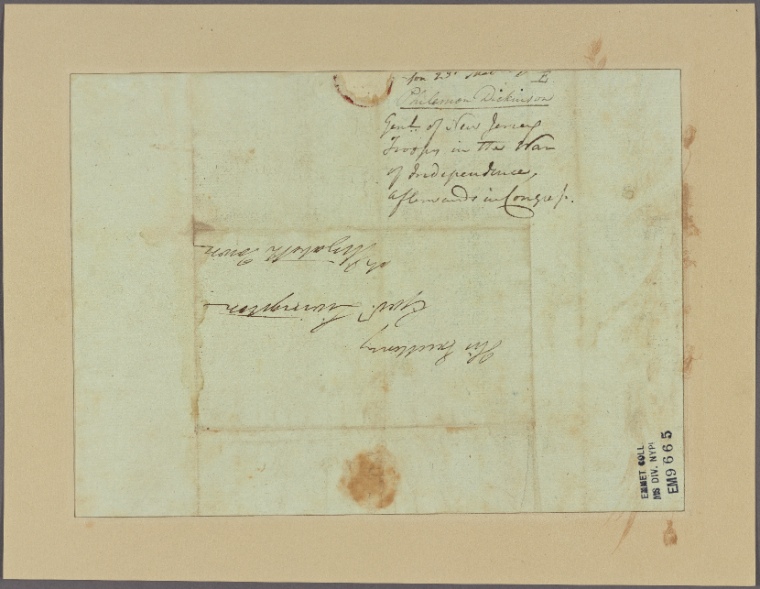 Philemon Dickinson
Genl. of New Jersey
Troops in the War
of Independence,
afterwards in Congress.
His Excellency
Govr. Livingston
at Elizabeth Town
EMMET COLL.
MS DIV. NYP
EM9665